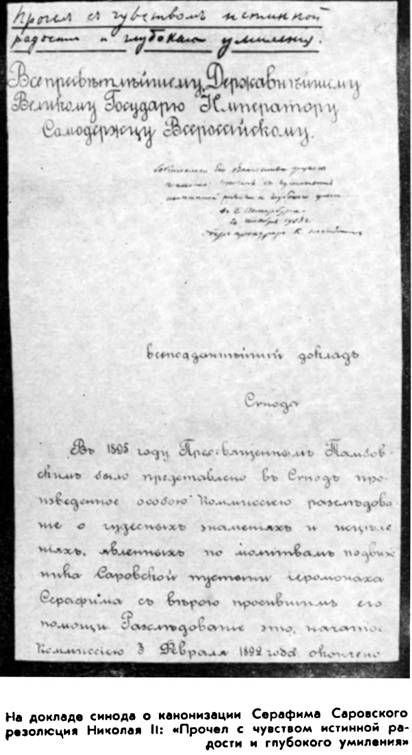 Прочел съ чувствомъ истинной
радости и глубокаго умиленія.
Всепресвѣтлѣйшему, Державнѣйшему
Великому Государю Императору
Самодержцу Всероссійскому.
Собственною Его Величества рукою
истинной радости и глубокаго
Оберъ-прокуроръ К.
всеподданнѣйшій докладъ
Сѵнода
Въ 1895 году Преосвященнымъ Тамбов-
скимъ было представлено въ Сѵнодъ про-
изведенное особою Коммиссіею разслѣдова-
ніе о чудесныхъ знаменіяхъ и исцѣле-
ніяхъ, явленныхъ по молитвамъ подвиж-
ника Саровской пустыни іеромонаха
Серафима съ вѣрою просившимъ его
помощи. Разслѣдованіе это, начатое
Коммиссіею 3 Февраля 1892 года окончено
На докладе синода о канонизации Серафима Саровского
резолюция Николая II: «Прочел с чувством истинной ра-
дости и глубокого умиления»